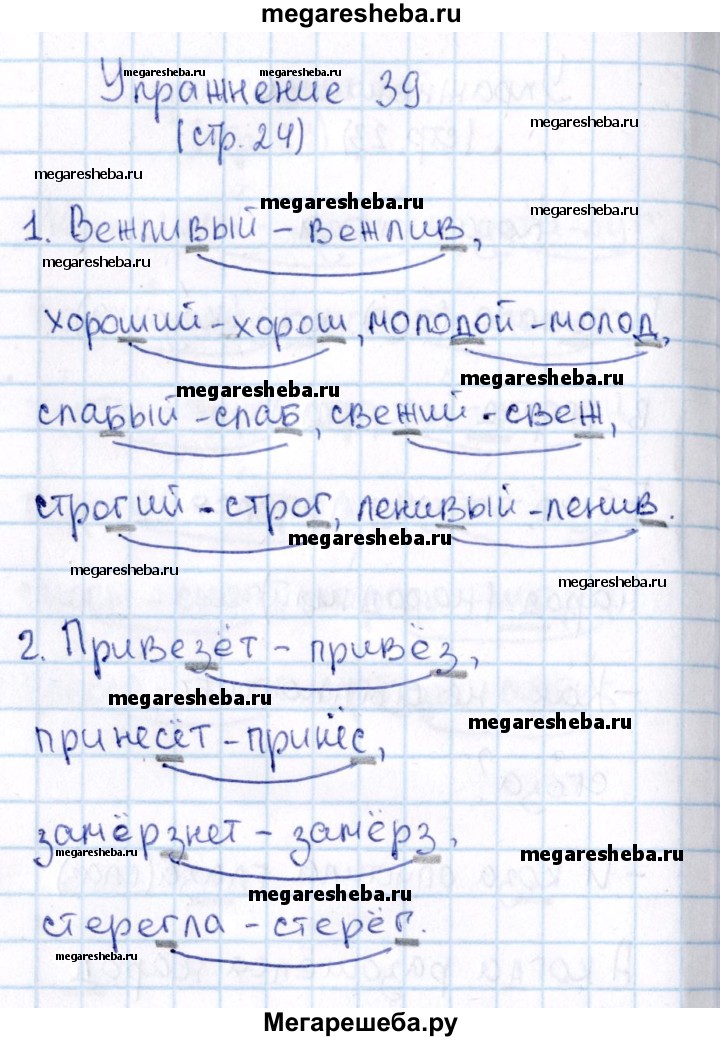 megaresheba.ru
megaresheba.ru megaresheba.ru
Упражнение 39
megaresheba.ru
(стр. 24)
megaresheba.ru
megaresheba.ru megaresheba.ru
1. Вежливый - вежлив,
megaresheba.ru
хороший - хорош, молодой - молод,
megaresheba.ru megaresheba.ru
слабый - слаб, свежий - свеж,
строгий - строг, ленивый - ленив.
megaresheba.ru
megaresheba.ru megaresheba.ru
2. Привезёт - привёз,
megaresheba.ru megaresheba.ru
принесёт - принёс,
замёрзнет - замёрз,
megaresheba.ru megaresheba.ru
megaresheba.ru
стерегла - стерёг.
megaresheba.ru
Мегарешеба.ру